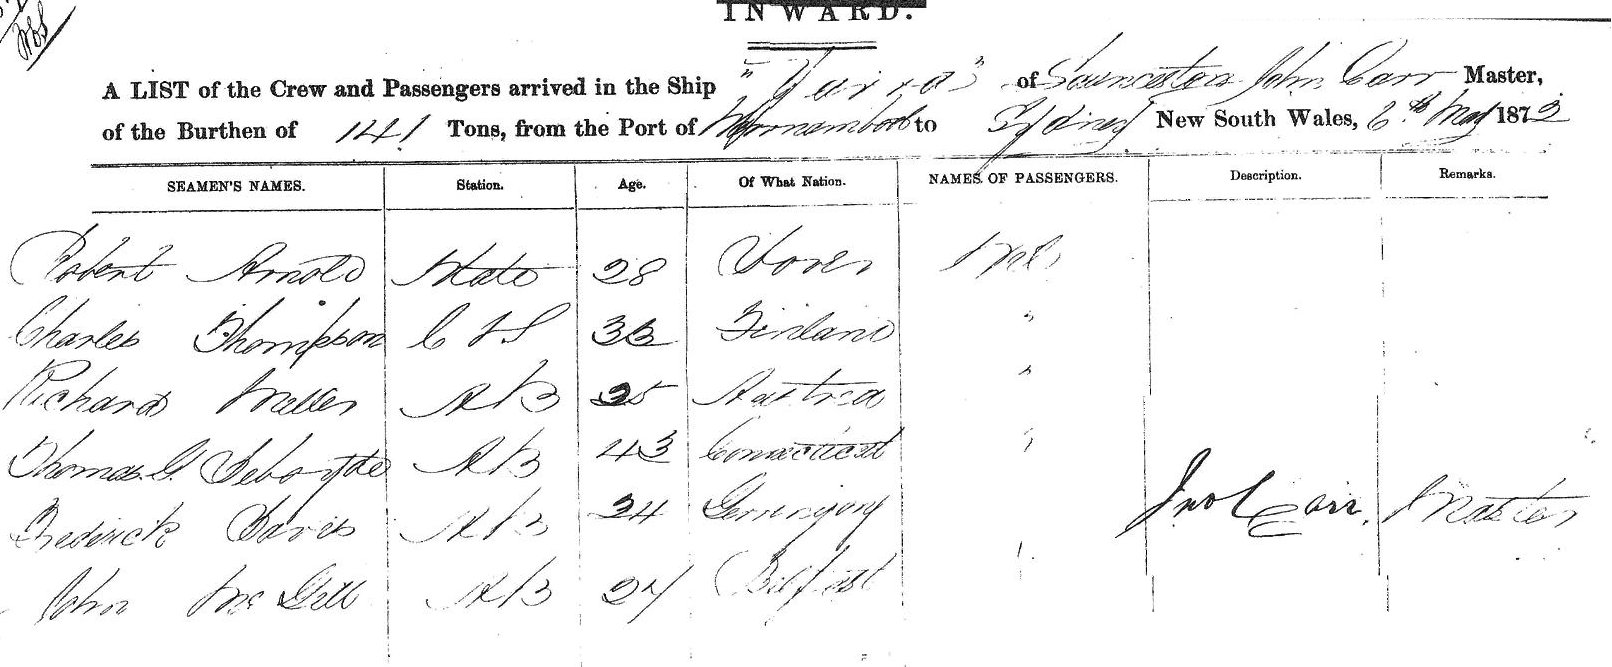 INWARD.
A LIST of the Crew and Passengers arrived in the Ship " " of Launceston John Carr Master,
of the Burthen of 141 Tons, from the Port of Warrnambool to Sydney New South Wales, 6th May 1873
SEAMEN'S NAMES. Station. Age. Of What Nation. NAMES OF PASSENGERS. Description. Remarks.
Robert Arnold Mate 28 Dover Nil
Charles Thompson C & S 33 Finland "
Richard Miller AB 25 Austria "
Thomas G. AB 43 Connecticut "
Frederick Davis AB 24 Germany
Jno Carr. Master
John McGill AB 24 Belfast "